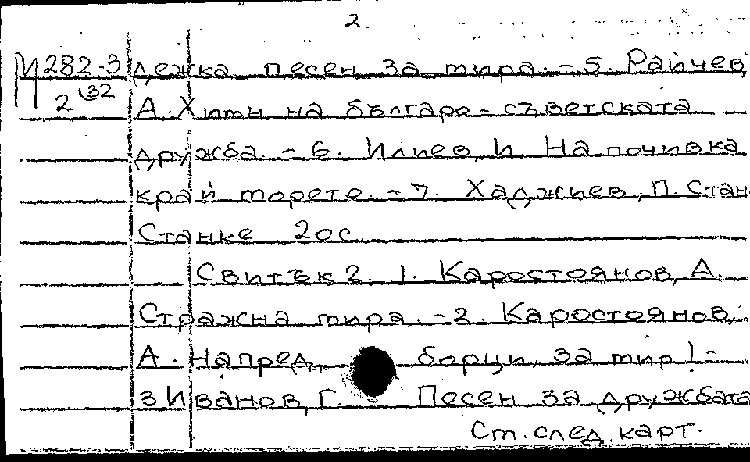 2.
И 282-3 дежка песен за мира. - 5. Райчев,
2 32 А. Химн на българо-съветската
дружба. - 6. Илиев, И. На почивка
край морето. - 7. Хаджиев, П. Стан
Станке 20с
Свитък 2. 1. Каростоянов, А.
Стража на мира. - 2. Каростоянов,
А. Напред, борци, за мир! -
3 Иванов, Г. Песен за дружбата
См. след. карт.